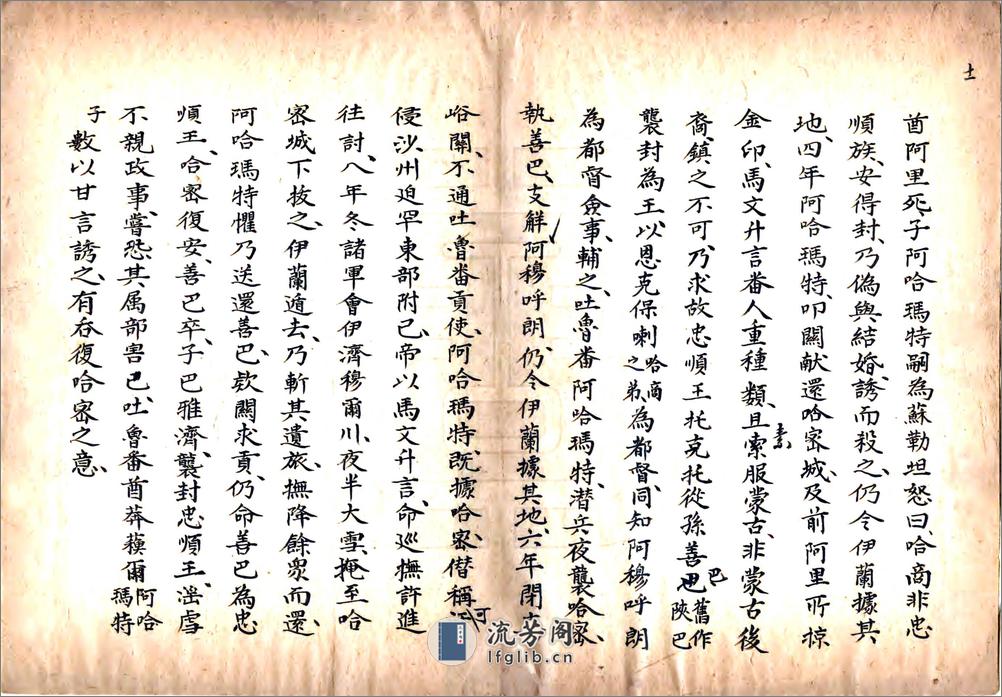 十一
酋阿里死子阿哈瑪特嗣為蘇勒坦怒曰、哈商非忠
順族、安得封、乃偽與結婚、誘而殺之、仍令伊蘭據其
地、四年阿哈瑪特叩關献還哈密城、及前阿里所掠
金印、馬文升言番人重種類、且索素服蒙古、非蒙古後
裔、鎮之不可、乃求故忠順王托克托從孫善巴巴舊作陝巴
襲封為王、以恩克保喇哈商之弟、為都督同知阿穆呼朗
為都督僉事、輔之、吐魯番阿哈瑪特、潜兵夜襲哈密、
執善巴、支解阿穆呼朗、仍令伊蘭據其地、六年閉
峪關、不通吐魯番貢使、阿哈瑪特、既據哈密僣稱可
侵沙州迫罕東部附己、帝以馬文升言、命巡撫許進
往討、八年冬諸軍會伊濟穆爾川、夜半大雪、掩至哈
密城下拔之、伊蘭遁去、乃斬其遺旅、撫降餘眾而還、
阿哈瑪特懼乃送還善巴、欵關求貢、仍命善巴為忠
順王、哈密復安、善巴卒、子巴雅濟、襲封忠順王、滛虐
不親政事、嘗恐其属部害己、吐魯番酋莽蘓爾阿哈瑪特
子數以甘言誘之、有吞復哈密之意、
流芳阁
lfglib.cn